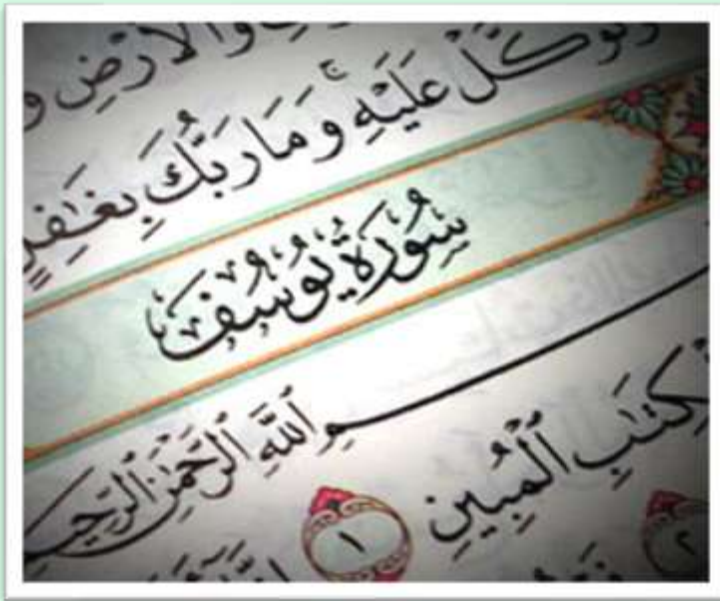 وَالْأَرْضِ و
وَتَوَكَّلْ عَلَيْهِ ۚ وَمَا رَبُّكَ بِغَٰفِلٍ
سُورَةُ يُوسُفَ
بِسْمِ ٱللَّهِ ٱلرَّحْمَٰنِ ٱلرَّحِيمِ
ٱلْكِتَٰبِ ٱلْمُبِينِ ١
٢